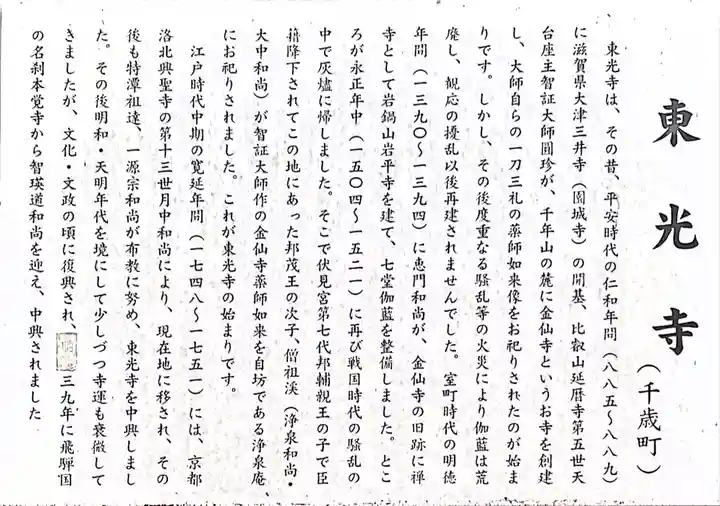 東光寺
（千歳町）
東光寺は、その昔、平安時代の仁和年間（八八五〜八八九）
に滋賀県大津三井寺（園城寺）の開基、比叡山延暦寺第五世天
台座主智証大師圓珍が、千年山の麓に金仙寺というお寺を創建
し、大師自らの一刀三礼の薬師如来像をお祀りされたのが始ま
りです。しかし、その後度重なる騒乱等の火災により伽藍は荒
廃し、観応の擾乱以後再建されませんでした。室町時代の明徳
年間（一三九〇〜一三九四）に恵門和尚が、金仙寺の旧跡に禅
寺として岩鍋山岩平寺を建て、七堂伽藍を整備しました。とこ
ろが永正年中（一五〇四〜一五二一）に再び戦国時代の騒乱の
中で灰燼に帰しました。そこで伏見宮第七代邦輔親王の子で臣
籍降下されてこの地にあった邦茂王の次子、僧祖渓（浄泉和尚・
大中和尚）が智証大師作の金仙寺薬師如来を自坊である浄泉庵
にお祀りされました。これが東光寺の始まりです。
江戸時代中期の寛延年間（一七四八〜一七五一）には、京都
洛北興聖寺の第十三世月中和尚により、現在地に移され、その
後も特潭祖達、一源宗和尚が布教に努め、東光寺を中興しまし
た。その後明和・天明年代を境にして少しづつ寺運も衰微して
きましたが、文化・文政の頃に復興され、明三九年に飛騨国
の名刹本覚寺から智瑛道和尚を迎え、中興されました